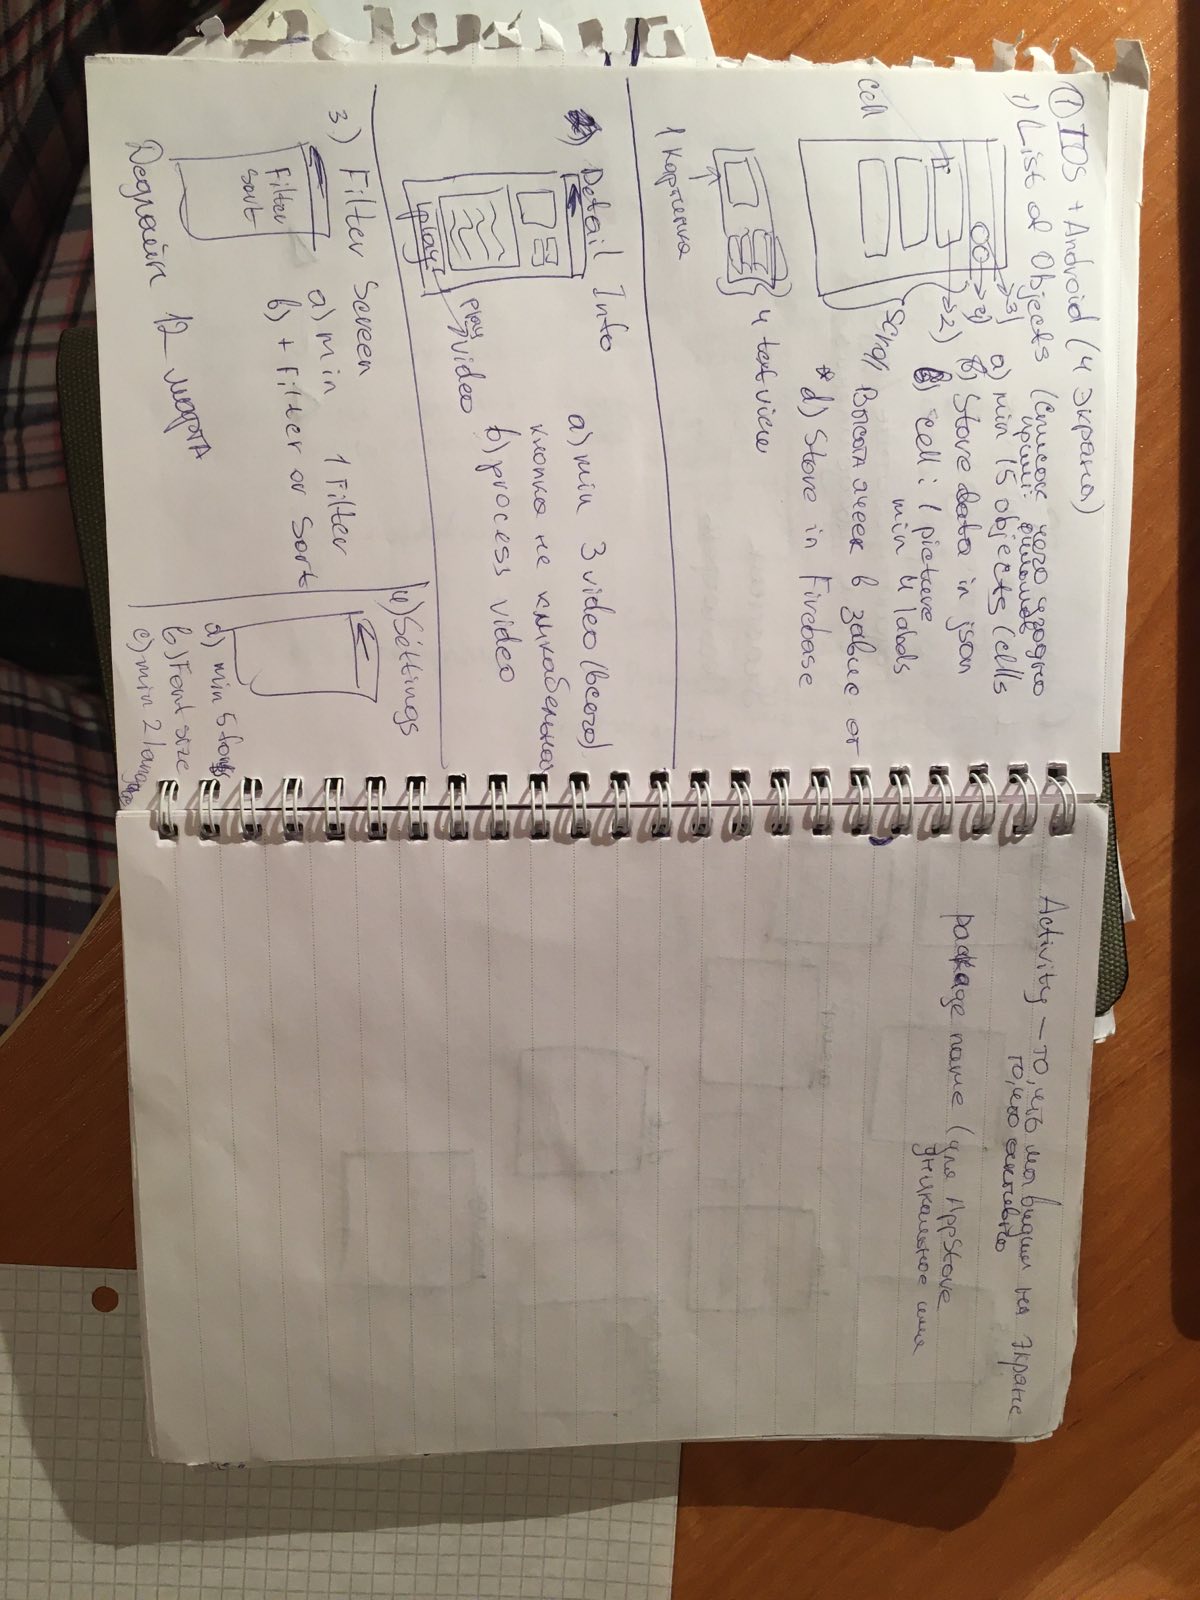 ① IOS + Android (4 экрана)
1) List of Objects (Список чего угодно
прим: фильмов
→ 3)
→ 4)
→ 2)
cell
Scroll
a) min 15 objects (cells
б) Store data in json
cell : 1 picture
min 4 labels
Высота ячеек в завис от
* d) Store in Firebase
4 text view
1 картинка
Detail Info
play
play
video
a) min 3 video (всего)
кнопка не кликабельна
b) process video
3) Filter Screen
Filter
Sort
a) min 1 Filter
b) + Filter or Sort
Дедлайн 12 марта
4) Settings
a) min 5 fonts
b) Font size
c) min 2 language
Activity – то, что мы видим на экране
то, что активно
package name (для AppStore
уникальное имя